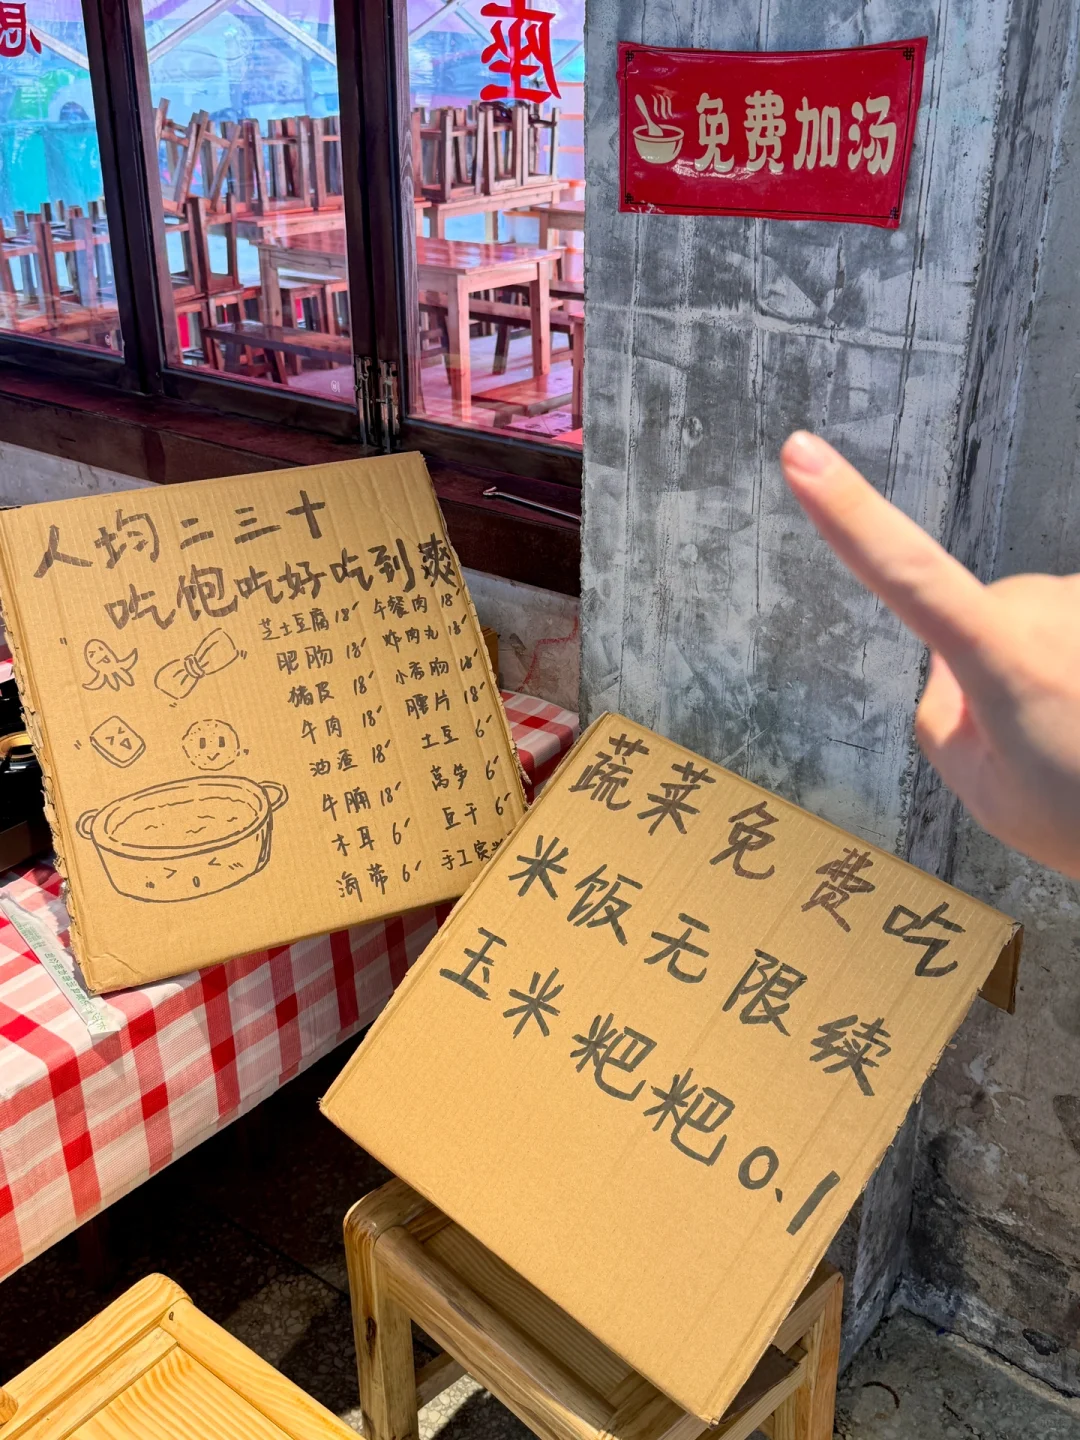 座
免费加汤
人均二三十
吃饱吃好吃到爽
芝士豆腐 18 午餐肉 18
肥肠 18 炸肉丸 18
猪皮 18 小香肠 18
牛肉 18 腰片 18
油渣 18 土豆 6
牛腩 18 莴笋 6
木耳 6 豆干 6
海带 6 手工
蔬菜免费吃
米饭无限续
玉米粑粑0.1